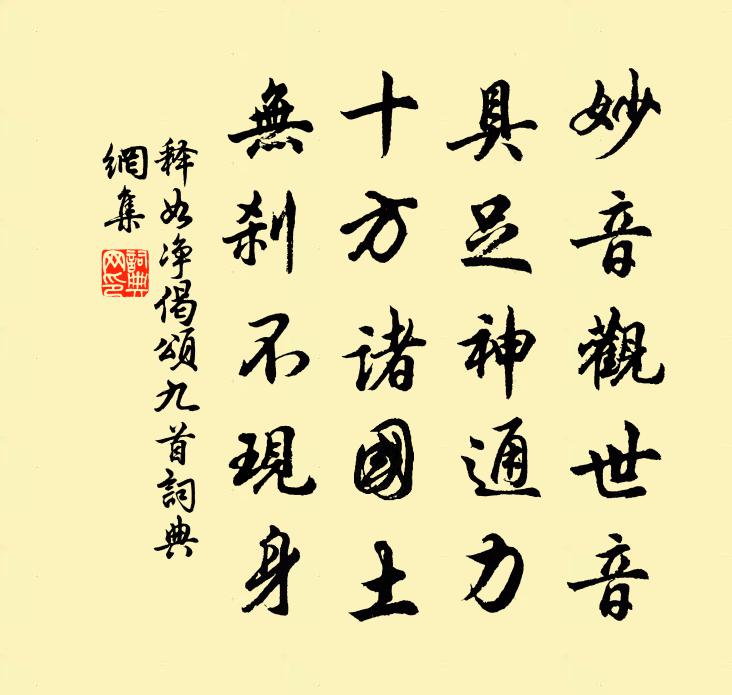 妙音觀世音
具足神通力
十方諸國土
無刹不現身
释如净偈頌九首詞典
網集
詞典
网印